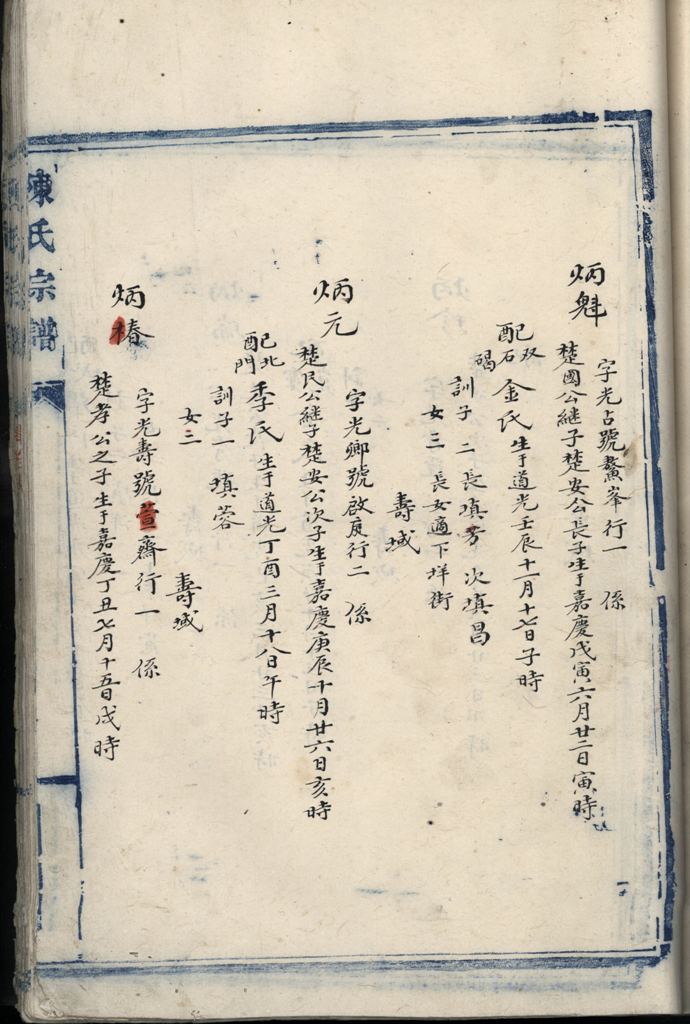 炳魁
字光占號鰲峯行一 係
楚國公繼子楚安公長子生于嘉慶戊寅六月廿二日寅時
配双石碣金氏生于道光壬辰十一月十七日子時
訓子二長填芳次填昌
女三長女適下垟街
壽域
炳元
字光卿號啟度行二 係
楚民公繼子楚安公次子生于嘉慶庚辰十月廿六日亥時
配北門季氏生于道光丁酉三月十八日午時
訓子一填蓉
女三
壽域
炳椿
字光壽號萱齋行一 係
楚孝公之子生于嘉慶丁丑七月十五日戌時
陳氏宗譜